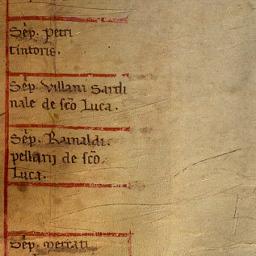 Sep. Petri
tintoris.
Sep. Villani Sardi
nale de sco Luca.
Sep. Rainaldi.
pellarij de sco.
Luca.
Sep. mercati